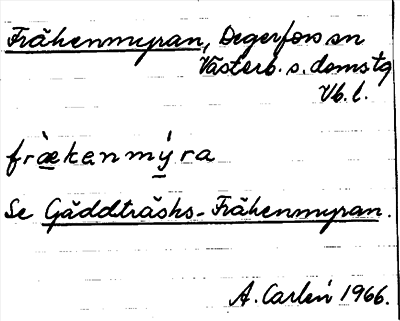 Fräkenmyran, Degerfors sn
Västerb. s. domstg
Vb. l.
fræ̀kenmýra
Se Gäddträsks-Fräkenmyran.
A. Carlén 1966.